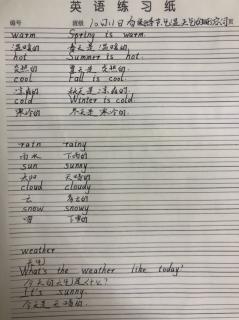 英 语 练 习 纸
编号 班级 10月11日
warm Spring is warm.
温暖的 春天是温暖的.
hot Summer is hot.
炎热的 夏天是炎热的.
cool Fall is cool.
凉爽的 秋天是凉爽的.
cold Winter is cold.
寒冷的 冬天是寒冷的.
rain rainy
雨水 下雨的
sun sunny
太阳 天晴的
cloud cloudy
云 多云的
snow snowy
雪 下雪的
weather
天气
What's the weather like today?
今天的天气是什么?
It's sunny.
今天是天晴的.